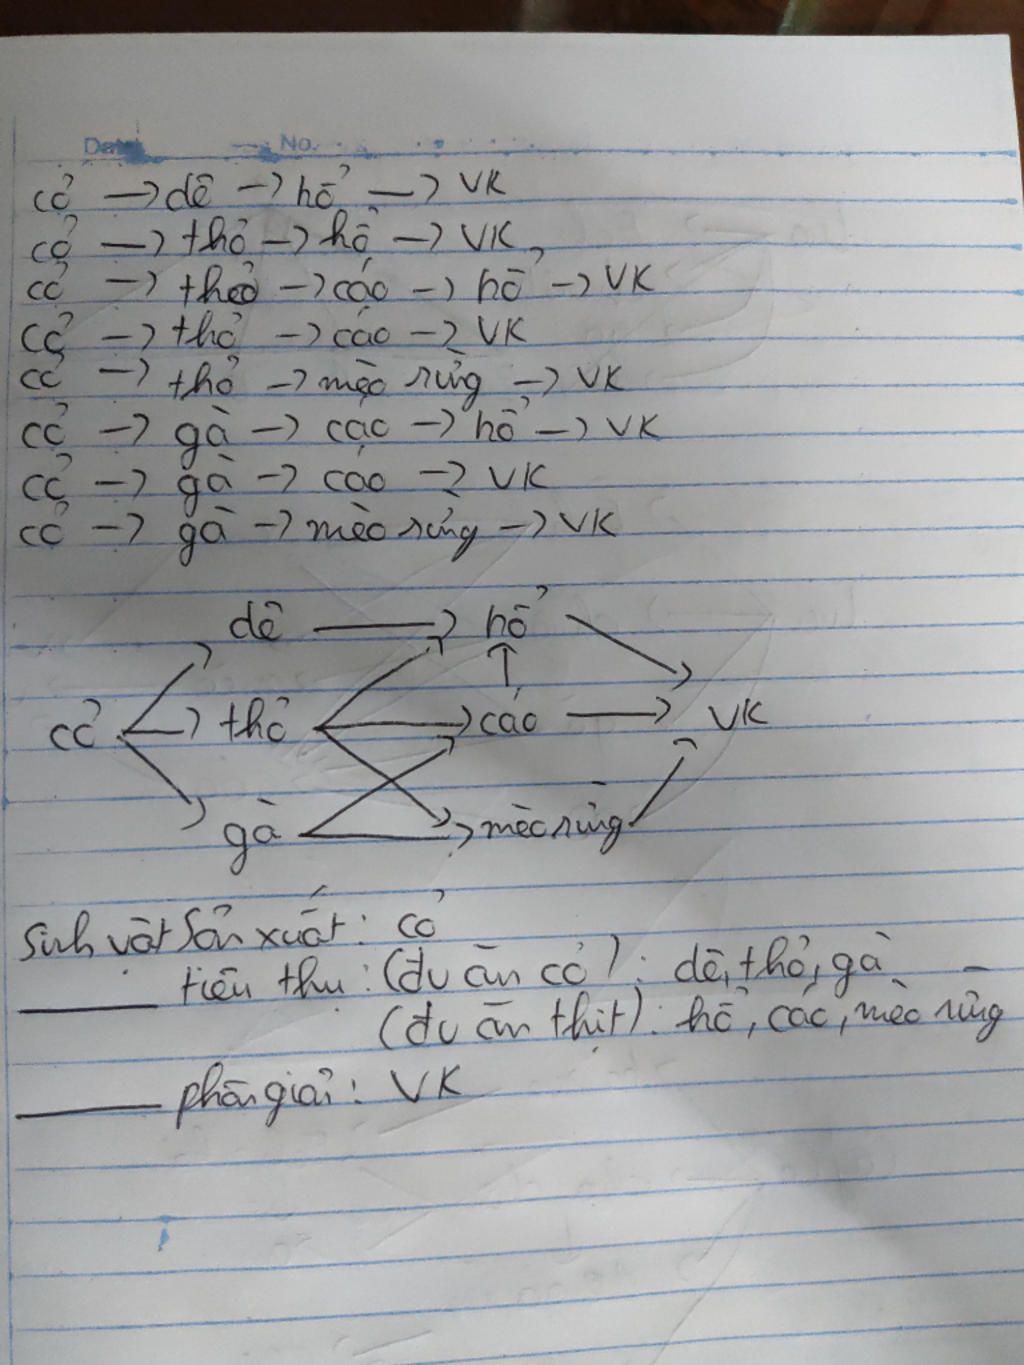 Date No.
cỏ → dê → hổ → VK
cỏ → thỏ → hổ → VK
cỏ → thỏ → cáo → hổ → VK
cỏ → thỏ → cáo → VK
cỏ → thỏ → mèo rừng → VK
cỏ → gà → cáo → hổ → VK
cỏ → gà → cáo → VK
cỏ → gà → mèo rừng → VK
dê → hổ
cỏ → thỏ → cáo → VK
gà → mèo rừng
Sinh vật sản xuất: cỏ
______ tiêu thụ: (đv ăn cỏ): dê, thỏ, gà
(đv ăn thịt): hổ, cáo, mèo rừng
______ phân giải: VK